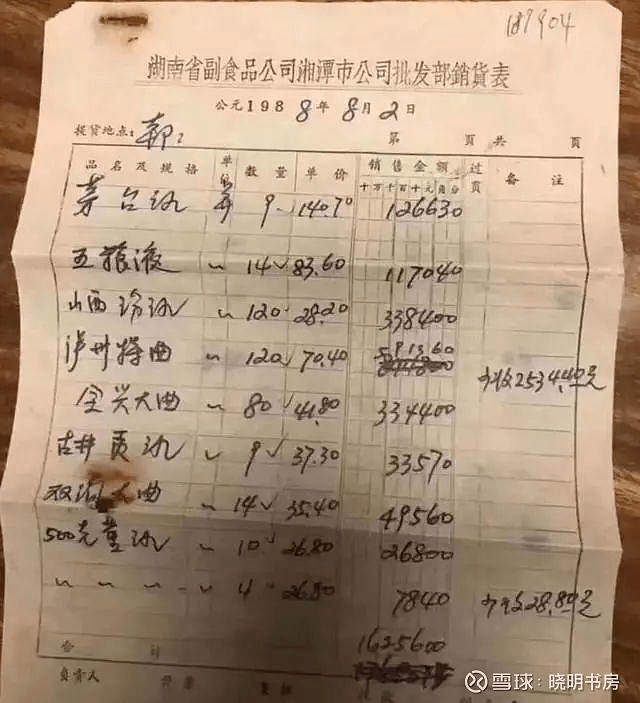 187904
湖南省副食品公司湘潭市公司批发部銷貨表
公元1988年8月2日
提貨地点: 第 页共 页
品名及规格 单位 数量 单价 銷售金額 过页 备注
十万千百十元角分
茅台酒 9 140.70 126630
五粮液 〃 14 83.60 117040
山西汾酒 〃 120 28.20 338400
泸州特曲 〃 120 70.40 5913.60 少收2534.40元
全兴大曲 〃 80 41.80 334400
古井贡酒 〃 9 37.30 33570
双沟大曲 〃 14 35.40 49560
500克董酒 〃 10 26.80 26800
〃 〃 〃 〃 〃 4 26.80 7840 少收28.80元
合计 1625600
负责人
雪球：晓明书房